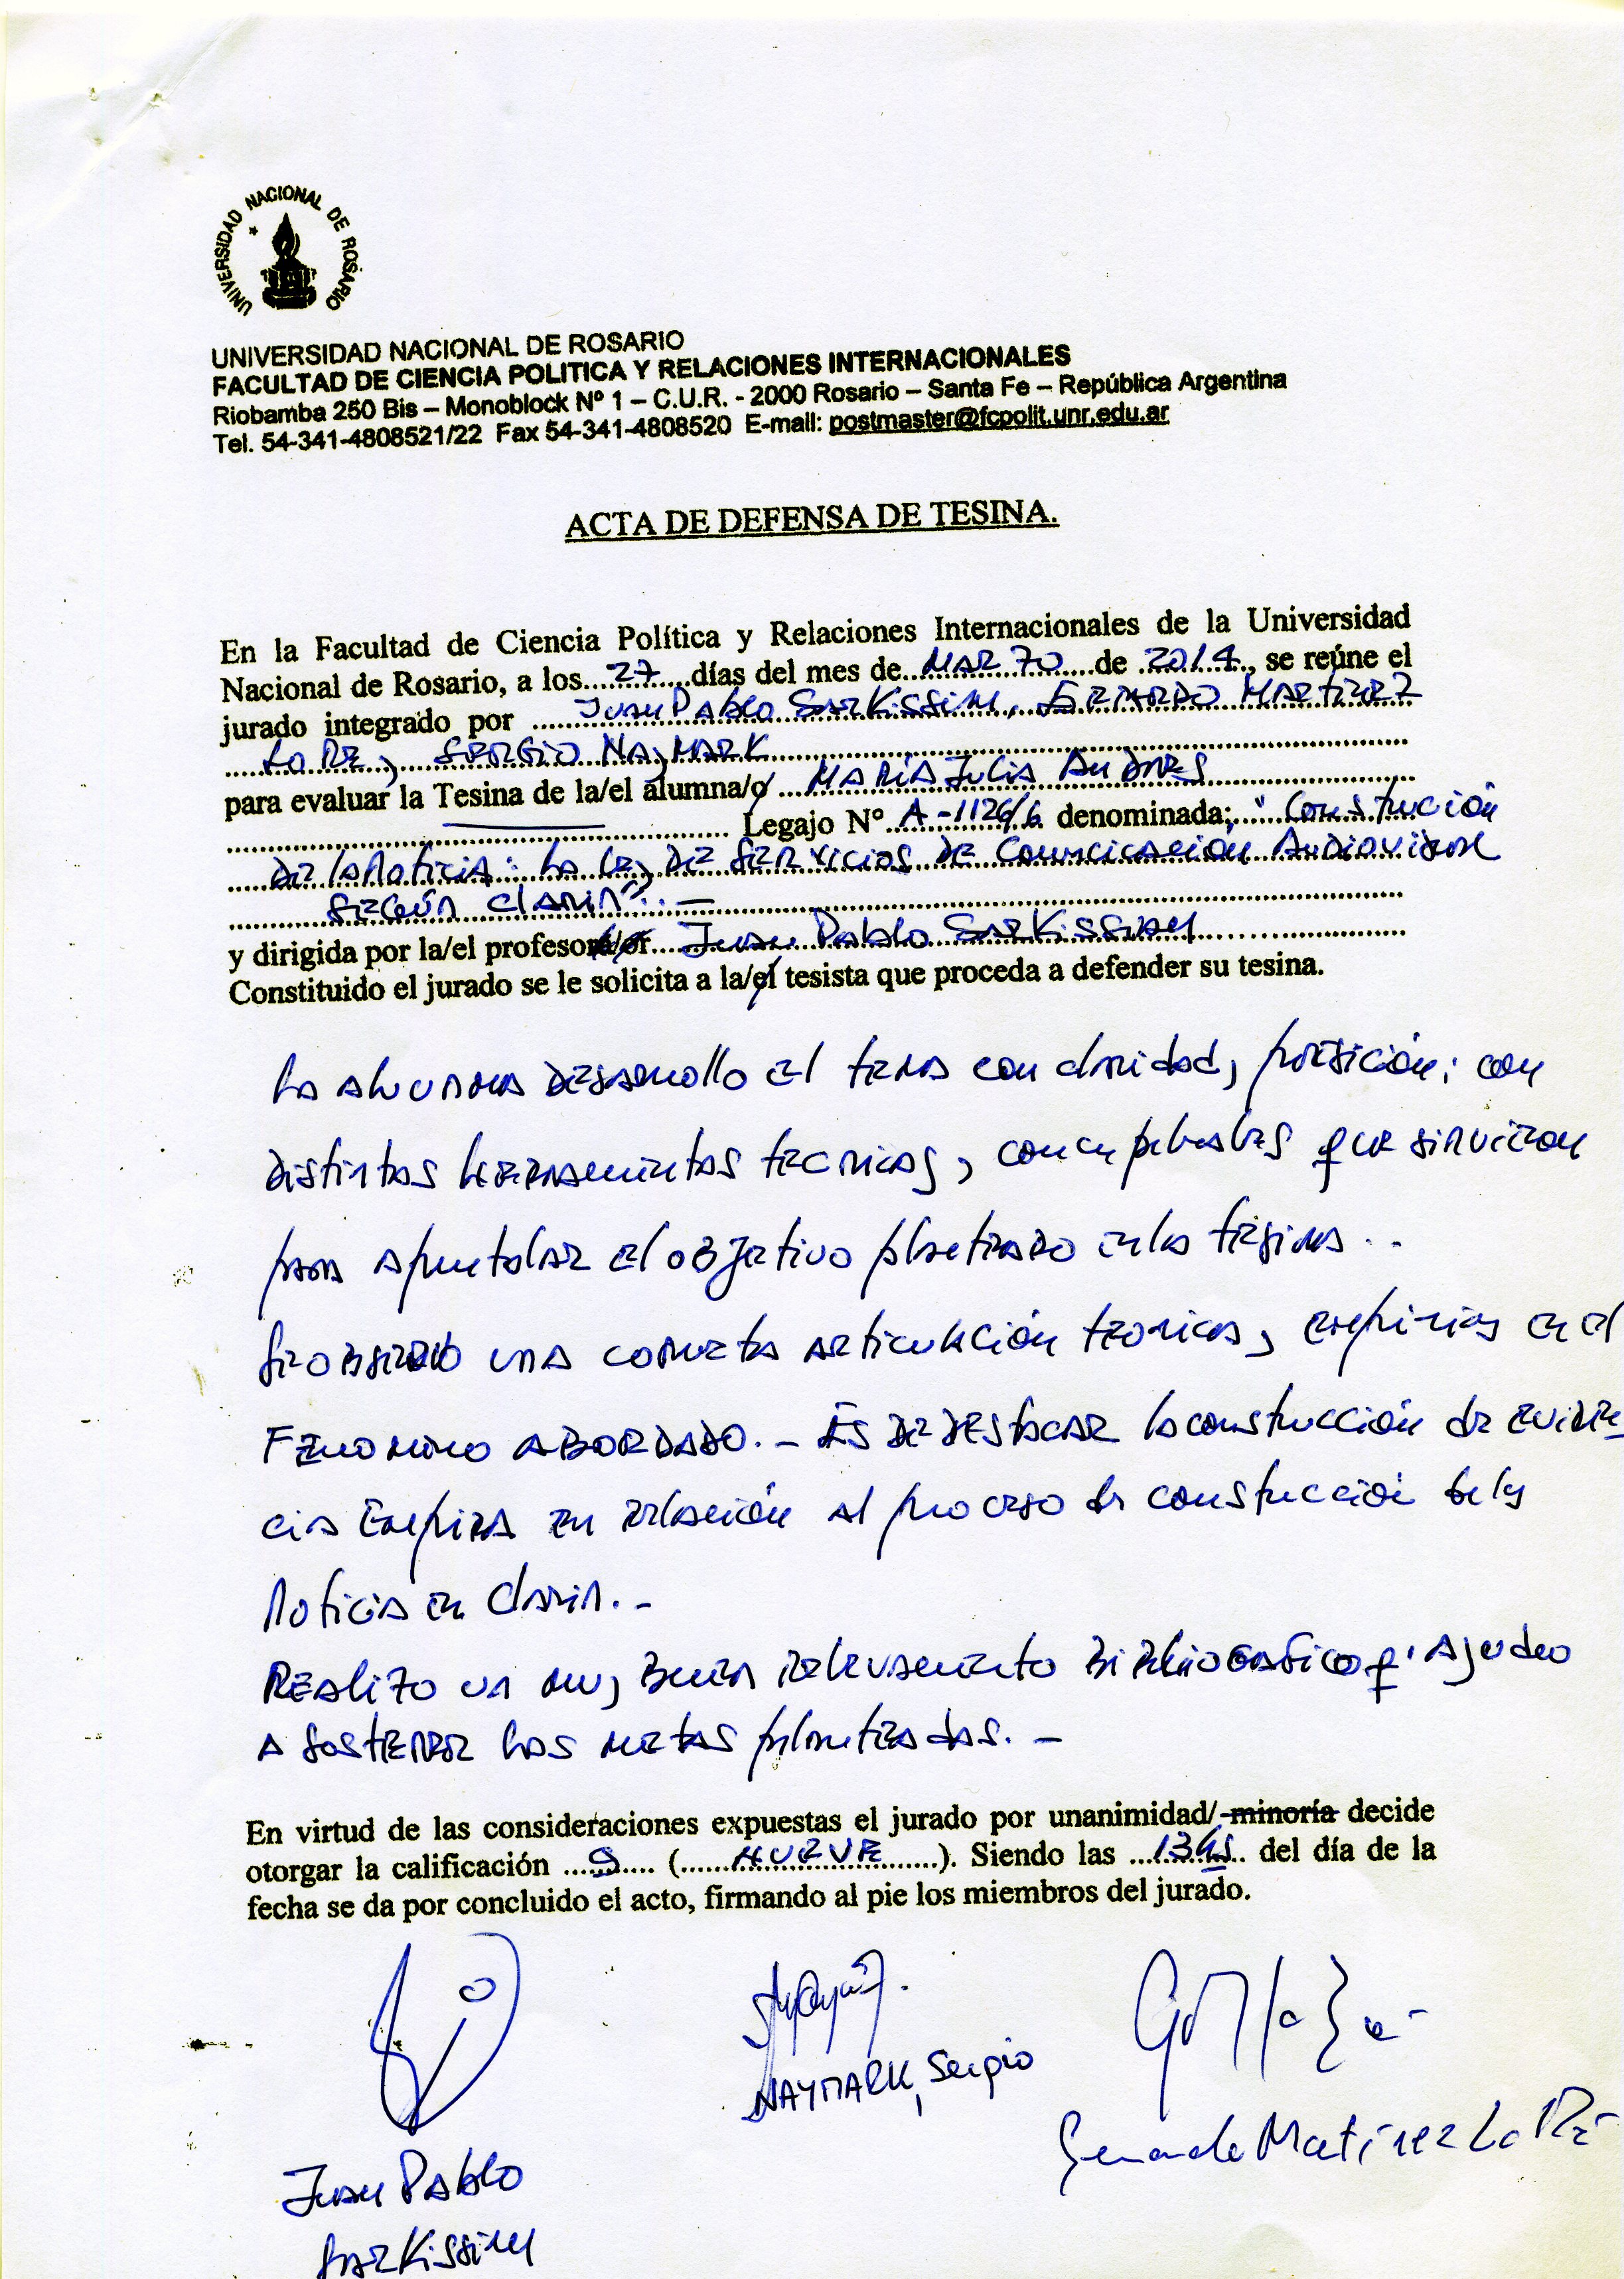 UNIVERSIDAD NACIONAL DE ROSARIO
UNIVERSIDAD NACIONAL DE ROSARIO
FACULTAD DE CIENCIA POLITICA Y RELACIONES INTERNACIONALES
Riobamba 250 Bis – Monoblock Nº 1 – C.U.R. - 2000 Rosario – Santa Fe – República Argentina
Tel. 54-341-4808521/22 Fax 54-341-4808520 E-mail: postmaster@fcpolit.unr.edu.ar
ACTA DE DEFENSA DE TESINA.
En la Facultad de Ciencia Política y Relaciones Internacionales de la Universidad
Nacional de Rosario, a los 27 días del mes de MARZO de 2014, se reúne el
jurado integrado por Juan Pablo Sarkissian, GERARDO MARTINEZ
LO RE y SERGIO NAYMARK
para evaluar la Tesina de la/el alumna/o MARÍA Julia ANDRES
Legajo Nº A-1126/6 denominada: "Construcción
DE la Noticia: La Ley DE SERVICIOS DE Comunicación Audiovisual
SEGÚN Clarin". –
y dirigida por la/el profesora/or Juan Pablo Sarkissian
Constituido el jurado se le solicita a la/el tesista que proceda a defender su tesina.
La alumna DESarrollo El tema con claridad y presición; con
Distintas herramientas tecnicas y conceptuales que sirvieron
para apuntalar El objetivo planteado en la tesina..
Se observo una correcta articulación teorica y empirica en el
FENOMENO ABORDADO. – ES DE DESTACAR la construcción de eviden
cia Empirica en relación al proceso de construcción de la
Noticia en Clarin. –
REAlizo un muy Buen relevamiento BiBliografico q' Ayudo
A sostener las metas planteadas. –
En virtud de las consideraciones expuestas el jurado por unanimidad/ minoría decide
otorgar la calificación 9 (NUEVE). Siendo las 13 hs del día de la
fecha se da por concluido el acto, firmando al pie los miembros del jurado.
NAYMARK, Sergio
Gerardo Martínez Lo Ré
Juan Pablo
Sarkissian